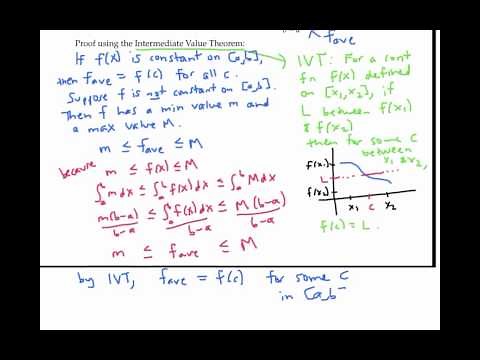 fave
Proof using the Intermediate Value Theorem:
If f(x) is constant on [a,b],
then fave = f(c) for all c.
Suppose f is not constant on [a,b].
Then f has a min value m and
a max value M.
m ≤ fave ≤ M
because m ≤ f(x) ≤ M
∫_a^b m dx ≤ ∫_a^b f(x) dx ≤ ∫_a^b M dx
m(b-a)/b-a ≤ ∫_a^b f(x) dx/b-a ≤ M(b-a)/b-a
m ≤ fave ≤ M
IVT: For a cont
fn f(x) defined
on [x₁,x₂], if
L between f(x₁)
& f(x₂)
then for some c
between
x₁ & x₂,
f(x₁)
L
f(x₂)
x₁ c x₂
f(c) = L.
by IVT, fave = f(c) for some c
in [a,b